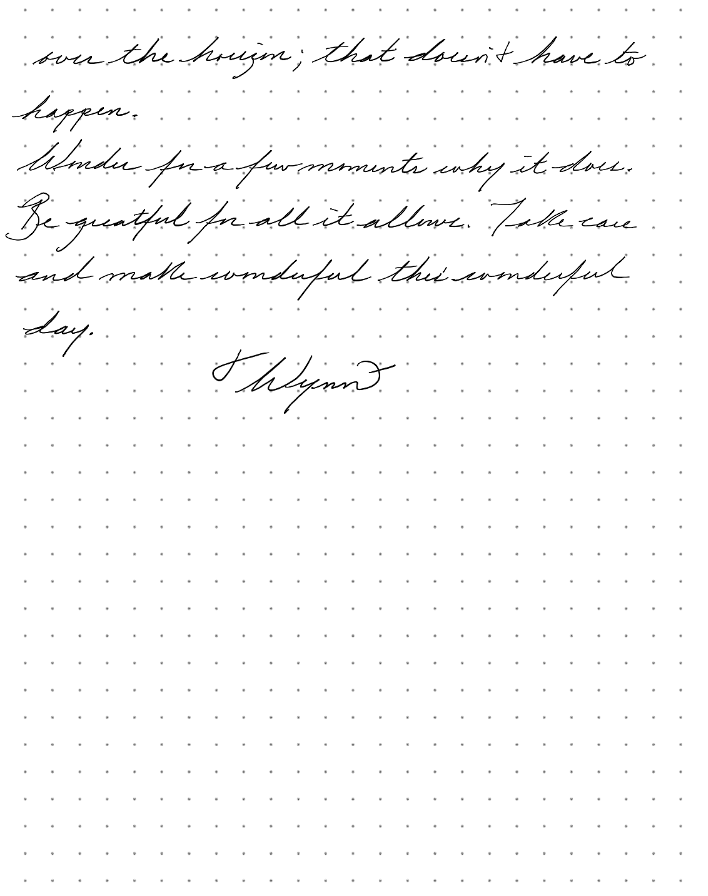 over the horizon; that doesn't have to
happen.
Wonder for a few moments why it does.
Be greatful for all it allows. Take care
and make wonderful this wonderful
day.
Wynn